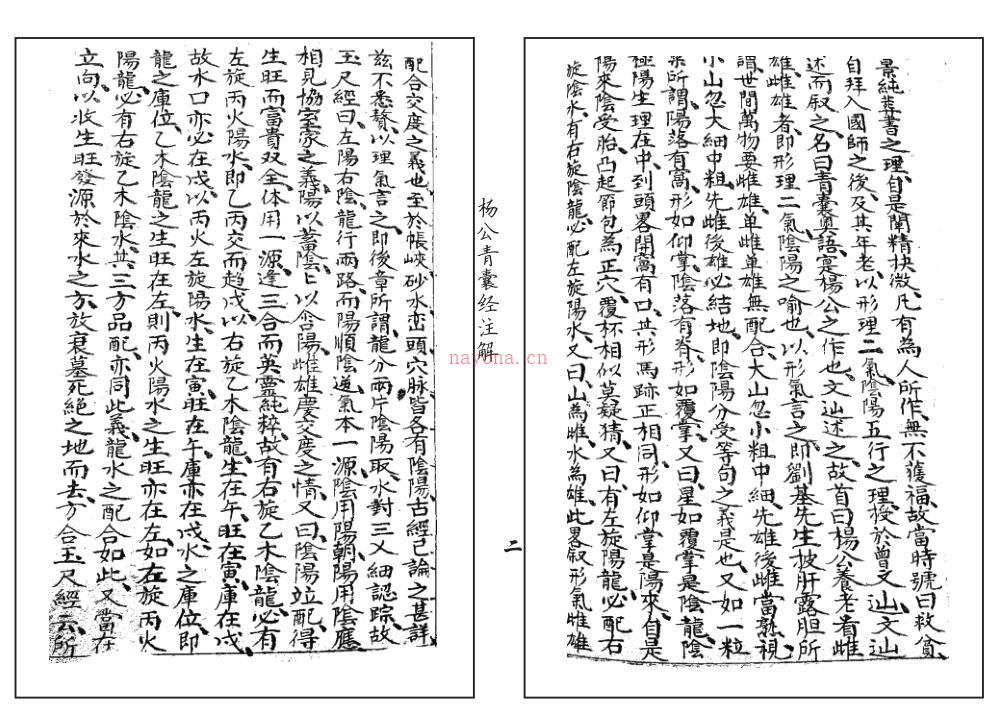 景純葬書之理自是闡精抉微凡有為人所作無不獲福故當時號曰救貧
自拜入國師之後及其年老以形理二氣陰陽五行之理授於曾文辿文辿
述而叙之名曰青囊奧語寔楊公之作也文辿述之故首曰楊公養老看雌
雄雌雄者即形理二氣陰陽之喻也以形氣言之即劉基先生披肝露胆所
謂世間萬物要雌雄单雌单雄無配合大山忽小粗中細先雄後雌當熟視
小山忽大細中粗先雌後雄必結地即陰陽分受等句之義是也又如一粒
粟所謂陽落有窩形如仰掌陰落有脊形如覆掌又曰星如覆掌是陰龍陰
極陽生理在中到頭畧開窩有口其形馬跡正相同形如仰掌是陽來自是
陽來陰受胎凸起節包為正穴覆杯相似莫疑猜又曰有左旋陽龍必配右
旋陰水有右旋陰龍必配左旋陽水又曰山為雌水為雄此畧叙形氣雌雄
杨公青囊经注解
二
配合交度之義也至於帳峽砂水巒頭穴脉皆各有陰陽古經已論之甚詳
兹不悉贅以理氣言之即後章所謂龍分兩片陰陽取水對三乂細認踪故
玉尺經曰左陽右陰龍行兩路而陽順陰逆氣本一源陰用陽朝陽用陰應
相見協室家之義陽以蓄陰陰以含陽雌雄慶交度之情又曰陰陽竝配得
生旺而富貴双全体用一源逢三合而英霊純粹故有右旋乙木陰龍必有
左旋丙火陽水即乙丙交而趋戍以右旋乙木陰龍生在午旺在寅庫在戍
故水口亦必在戍以丙火左旋陽水生在寅旺在午庫亦在戍水之庫位即
龍之庫位乙木陰龍之生旺在左則丙火陽水之生旺亦在左如左旋丙火
陽龍必有右旋乙木陰水其三方品配亦同此義龍水之配合如此又當在
立向以收生旺發源於來水之方放衰墓死絕之地而去方合玉尺經云所
nayona.cn